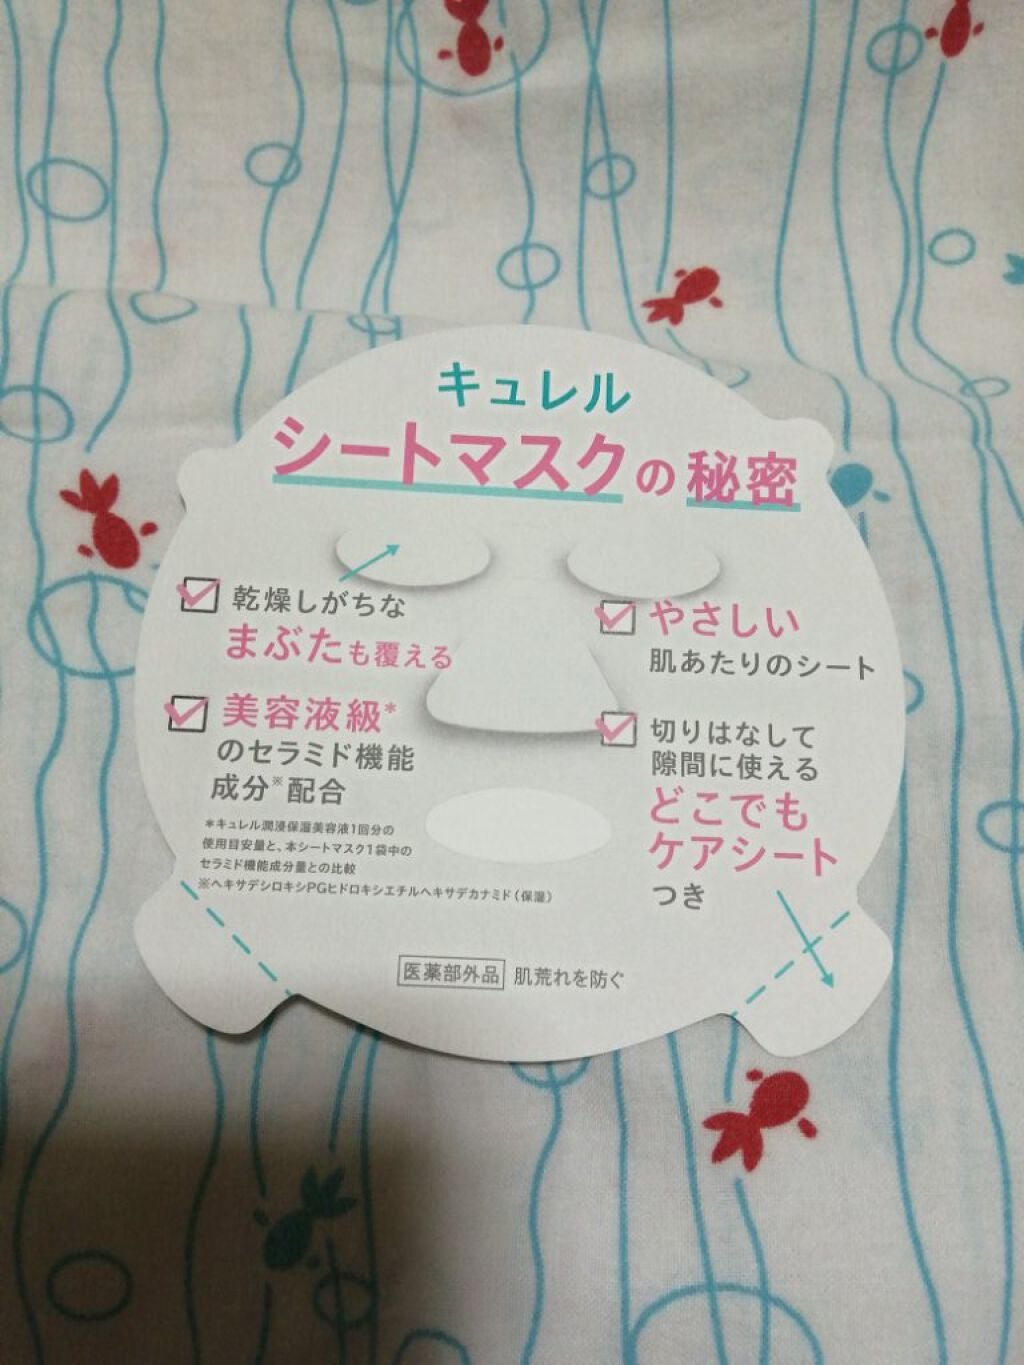 キュレル
シートマスクの秘密
乾燥しがちな
まぶたも覆える
美容液級*
のセラミド機能
成分※配合
*キュレル潤浸保湿美容液1回分の
使用目安量と、本シートマスク1袋中の
セラミド機能成分量との比較
※ヘキサデシロキシPGヒドロキシエチルヘキサデカナミド(保湿)
やさしい
肌あたりのシート
切りはなして
隙間に使える
どこでも
ケアシート
つき
医薬部外品 肌荒れを防ぐ